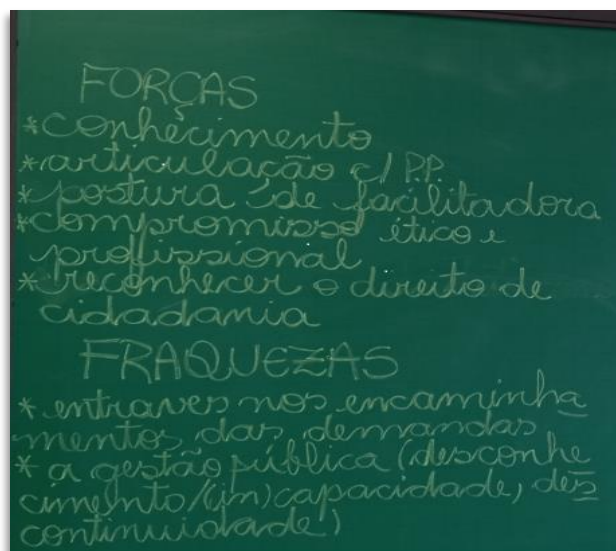 FORÇAS
*conhecimento
*articulação c/ P.P.
*postura de facilitadora
*compromisso ético e
profissional
*reconhecer o direito de
cidadania
FRAQUEZAS
* entraves nos encaminha
mentos das demandas
* a gestão pública (desconhe
cimento/(in)capacidade, des
continuidade)